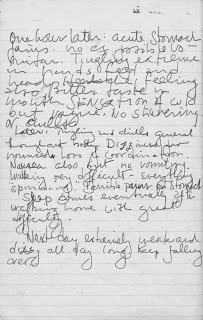 One hour later: acute stomach
pains. no ex possible -
similar. Tingling extreme
in hands, feet and
head,
also bitter taste in
mouth. Sensation of cold
but vague. No shivering
or chills.
Later: Tingling and chills general
throughout body. Dizziness, pro
nounced loss of coordination.
Nausea also but no vomiting.
Walking very difficult - everything
"spinning." Terrible pains in stomach
Sleep comes eventually after
walking home with great
difficulty.
Next day extremely weak and
dizzy all day long (keep falling
over)